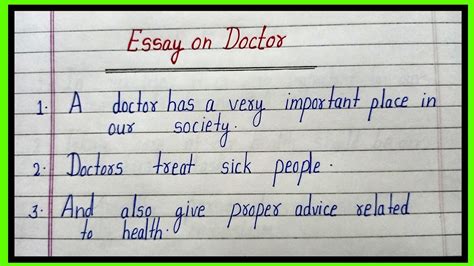 Essay on Doctor
1. A doctor has a very important place in
our society.
2. Doctors treat sick people.
3. And also give proper advice related
to health.